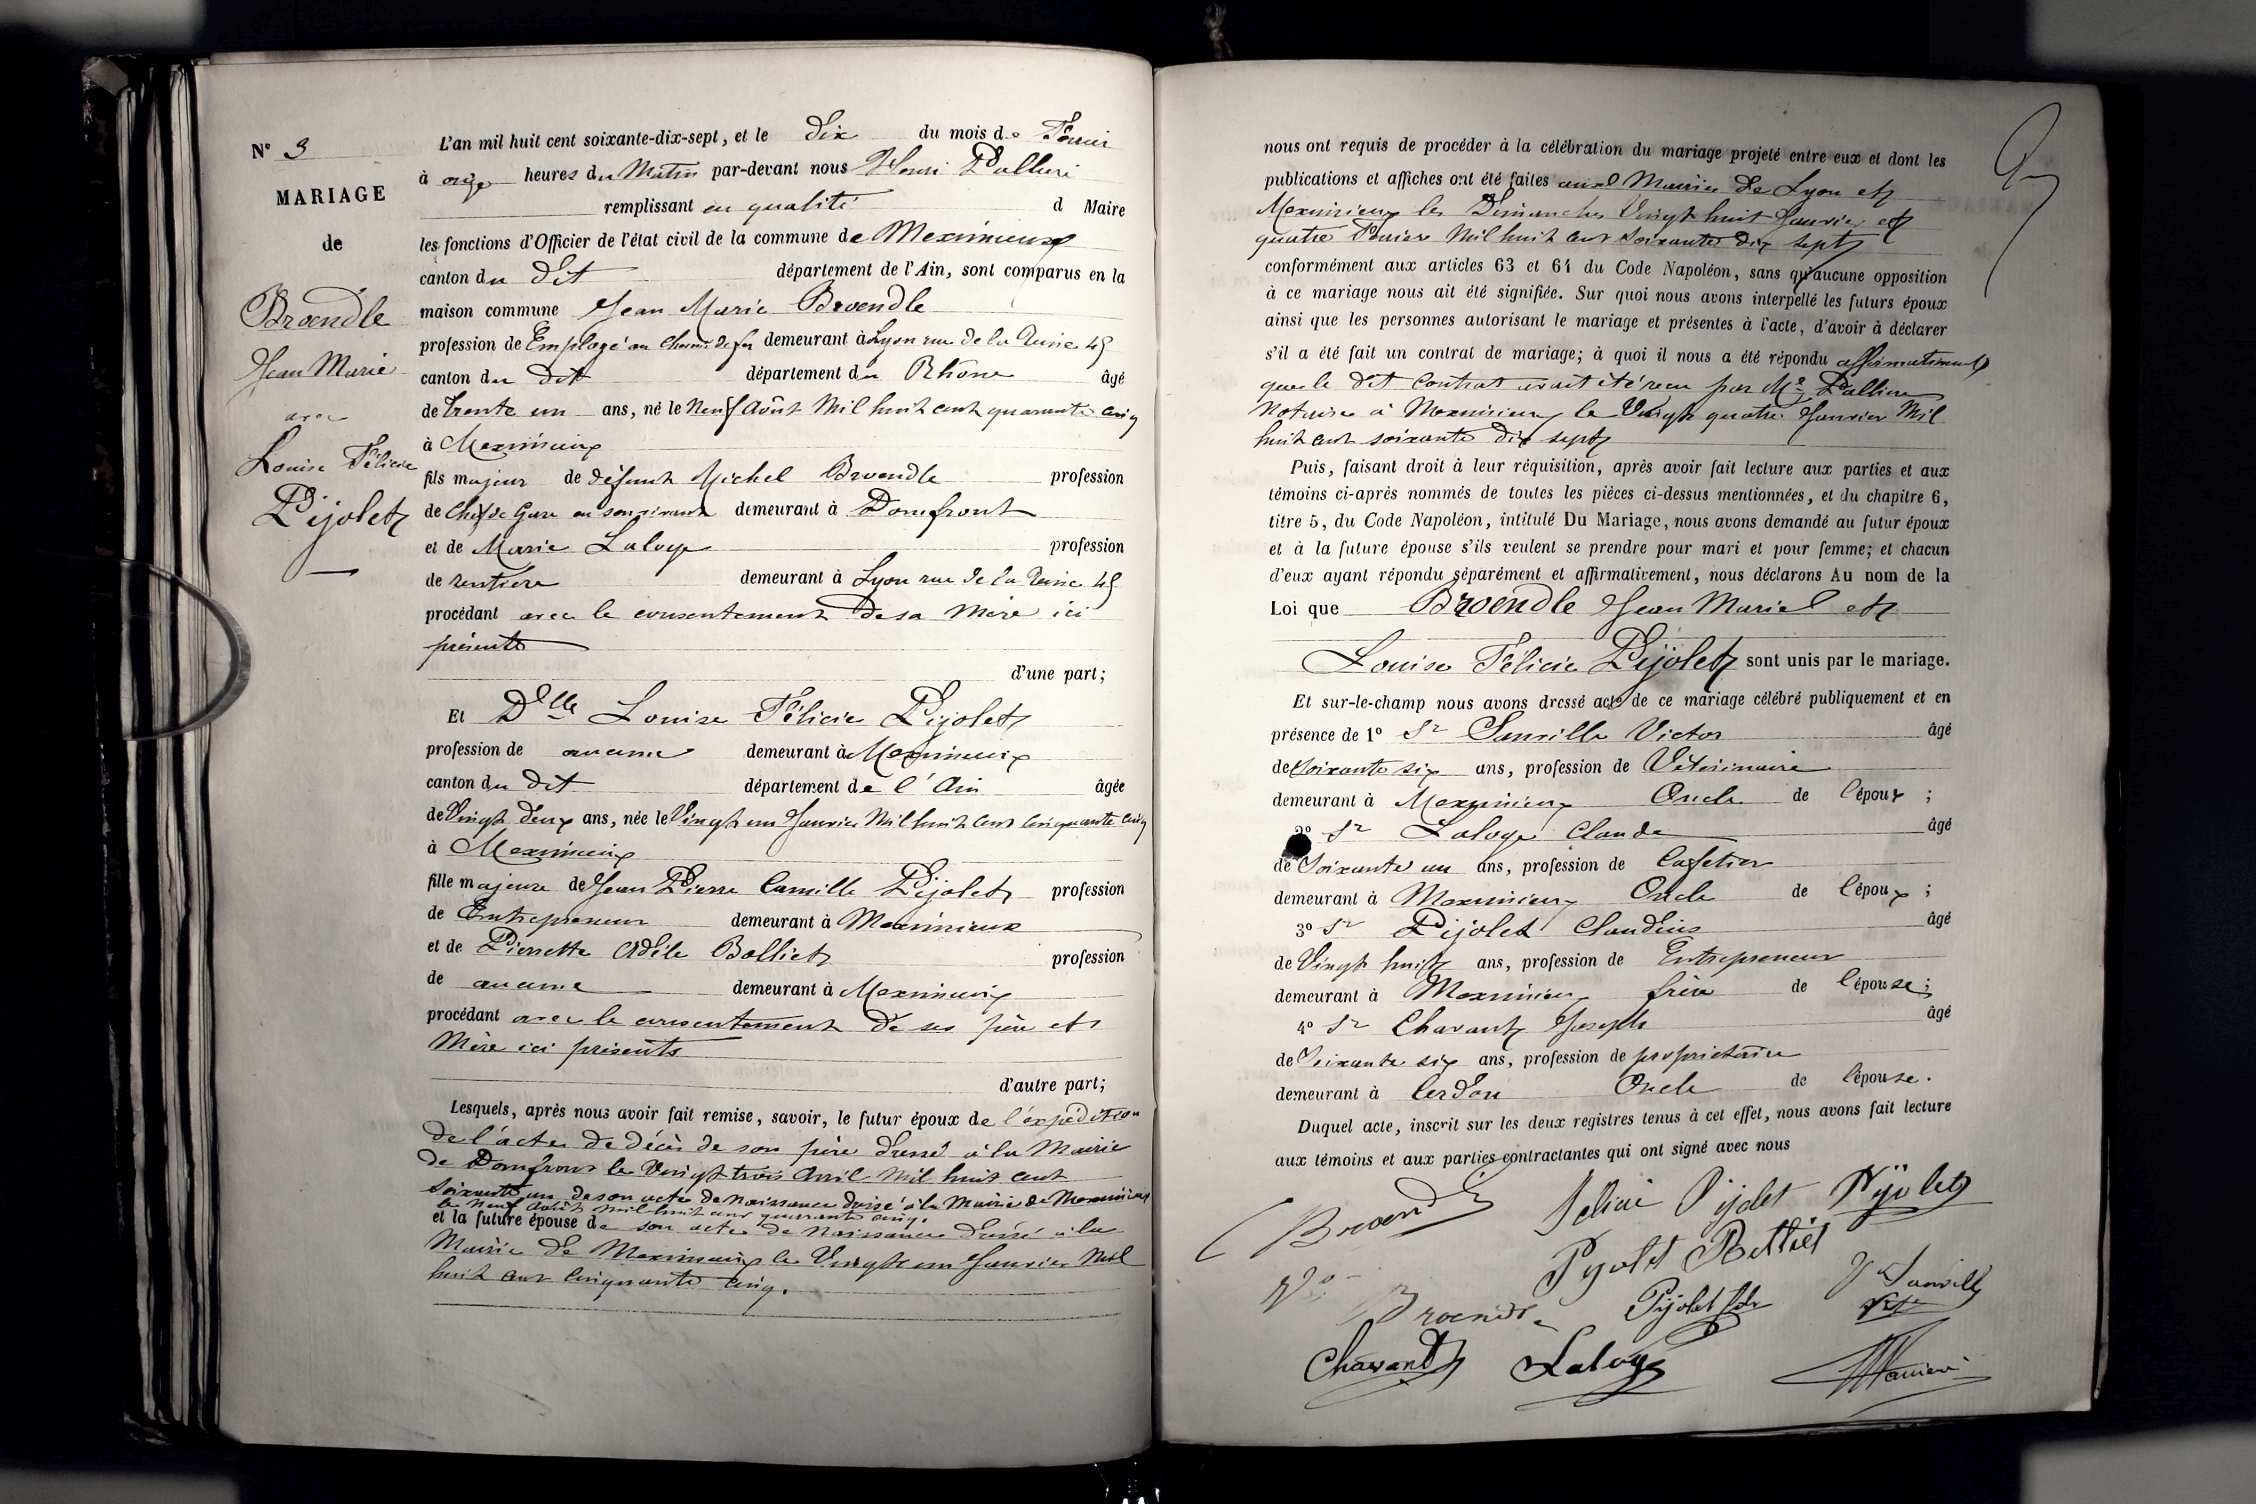 N° 3
MARIAGE
de
Broendle
Jean Marie
avec
Louise Félicie
Pijolet
L'an mil huit cent soixante-dix-sept, et le dix du mois de Février
à onze heures du Matin par-devant nous Henri Pallieri
remplissant en qualité d Maire
les fonctions d'Officier de l'état civil de la commune de Meximieux
canton du dit département de l'Ain, sont comparus en la
maison commune Jean Marie Broendle
profession de Employé au Chemin de fer demeurant à Lyon rue de la Reine 45
canton du dit département du Rhone âgé
de trente un ans, né le Neuf Août Mil huit cent quarante cinq
à Meximieux
fils majeur de défunt Michel Broendle profession
de Chef de Gare en son vivant demeurant à Domfront
et de Marie Laloye profession
de rentière demeurant à Lyon rue de la Reine 45
procédant avec le consentement de sa Mère ici
présente
d'une part;
Et Delle Louise Félicie Pijolet
profession de aucune demeurant à Meximieux
canton du dit département de l'Ain âgée
de Vingt deux ans, née le Vingt un Janvier Mil huit cent cinquante cinq
à Meximieux
fille majeure de Jean Pierre Camille Pijolet profession
de Entrepreneur demeurant à Meximieux
et de Pierrette Adèle Bolliet profession
de aucune demeurant à Meximieux
procédant avec le consentement de ses père et
Mère ici présents
d'autre part;
Lesquels, après nous avoir fait remise, savoir, le futur époux de l'expédition
de l'acte de décès de son père dressé à la Mairie
de Domfront le Vingt trois Avril Mil huit cent
soixante un de son acte de Naissance dressé à la Mairie de Meximieux
le Neuf Août Mil huit cent quarante cinq.
et la future épouse de son acte de Naissance dressé à la
Mairie de Meximieux le Vingt un Janvier Mil
huit cent cinquante cinq.
nous ont requis de procéder à la célébration du mariage projeté entre eux et dont les
publications et affiches ont été faites aux Mairies de Lyon et
Meximieux les Dimanches Vingt huit Janvier et
quatre Février Mil huit cent soixante dix sept
conformément aux articles 63 et 64 du Code Napoléon, sans qu'aucune opposition
à ce mariage nous ait été signifiée. Sur quoi nous avons interpellé les futurs époux
ainsi que les personnes autorisant le mariage et présentes à l'acte, d'avoir à déclarer
s'il a été fait un contrat de mariage; à quoi il nous a été répondu affirmativement
que le dit Contrat avait été reçu par Me Pallieri
Notaire à Meximieux le Vingt quatre Janvier Mil
huit cent soixante dix sept
Puis, faisant droit à leur réquisition, après avoir fait lecture aux parties et aux
témoins ci-après nommés de toutes les pièces ci-dessus mentionnées, et du chapitre 6,
titre 5, du Code Napoléon, intitulé Du Mariage, nous avons demandé au futur époux
et à la future épouse s'ils veulent se prendre pour mari et pour femme; et chacun
d'eux ayant répondu séparément et affirmativement, nous déclarons Au nom de la
Loi que Broendle Jean Marie et
Louise Félicie Pijolet sont unis par le mariage.
Et sur-le-champ nous avons dressé acte de ce mariage célébré publiquement et en
présence de 1° Sr Sanville Victor âgé
de Soixante six ans, profession de Vétérinaire
demeurant à Meximieux Oncle de l'époux ;
2° Sr Laloye Claude âgé
de Soixante un ans, profession de Cafetier
demeurant à Meximieux Oncle de l'époux ;
3° Sr Pijolet Claudius âgé
de Vingt huit ans, profession de Entrepreneur
demeurant à Meximieux frère de l'épouse ;
4° Sr Chavant Joseph âgé
de Soixante six ans, profession de propriétaire
demeurant à Cerdon Oncle de l'épouse.
Duquel acte, inscrit sur les deux registres tenus à cet effet, nous avons fait lecture
aux témoins et aux parties contractantes qui ont signé avec nous
Broendle Félicie Pijolet Pijolet
Pijolet Bolliet
Ve Broendle Pijolet fils V. Sanville
Chavant Laloye